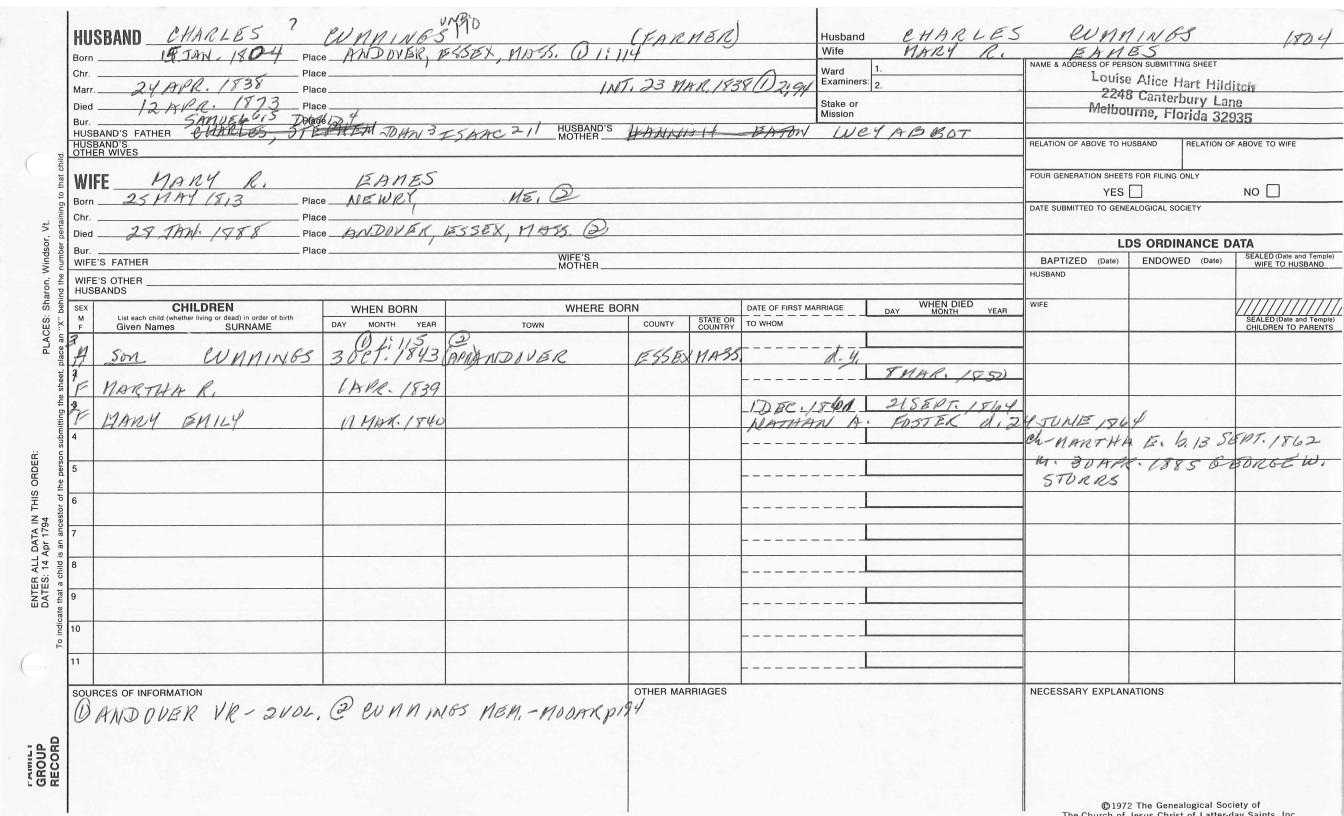 HUSBAND CHARLES ? CUMMINGS (FARMER)
Born JAN. 1804 Place ANDOVER, ESSEX, MASS. ① 1:114
Chr. Place
Marr. 24 APR. 1838 Place INT. 23 MAR. 1838 ① 2:94
Died 12 APR. 1873 Place
Bur. Place
SAMUEL
HUSBAND'S FATHER CHARLES, STEPHEN JOHN 3 ISAAC 2, 1 HUSBAND'S MOTHER HANNAH EATON LUCY ABBOT
HUSBAND'S OTHER WIVES
WIFE MARY R. EAMES
Born 25 MAY 1813 Place NEWRY, ME. ②
Chr. Place
Died 28 JAN. 1888 Place ANDOVER, ESSEX, MASS. ②
Bur. Place
WIFE'S FATHER WIFE'S MOTHER
WIFE'S OTHER HUSBANDS
Husband CHARLES CUMMINGS 1804
Wife MARY R. EAMES
Ward Examiners: 1.
2.
Stake or Mission
NAME & ADDRESS OF PERSON SUBMITTING SHEET
Louise Alice Hart Hilditch
2248 Canterbury Lane
Melbourne, Florida 32935
RELATION OF ABOVE TO HUSBAND RELATION OF ABOVE TO WIFE
FOUR GENERATION SHEETS FOR FILING ONLY
YES NO
DATE SUBMITTED TO GENEALOGICAL SOCIETY
LDS ORDINANCE DATA
BAPTIZED (Date) ENDOWED (Date) SEALED (Date and Temple) WIFE TO HUSBAND
HUSBAND
WIFE
SEALED (Date and Temple) CHILDREN TO PARENTS
SEX M F
CHILDREN
List each child (whether living or dead) in order of birth
Given Names SURNAME
WHEN BORN
DAY MONTH YEAR
WHERE BORN
TOWN COUNTY STATE OR COUNTRY
DATE OF FIRST MARRIAGE
TO WHOM
WHEN DIED
DAY MONTH YEAR
① 1:115 ②
3 M Son CUMMINGS 3 OCT. 1843 ANDOVER ESSEX MASS. d.y.
F MARTHA R. 1 APR. 1839 8 MAR. 1850
F MARY EMILY 17 MAR. 1840 1 DEC. 21 SEPT. 1864
NATHAN A. FOSTER d. 24 JUNE 1864
ch- MARTHA E. b. 13 SEPT. 1862
m. 30 APR. 1885 GEORGE W.
STORRS
4
5
6
7
8
9
10
11
SOURCES OF INFORMATION
① ANDOVER VR - 2 VOL. ② CUMMINGS MEM. - MOOAR p194
OTHER MARRIAGES
NECESSARY EXPLANATIONS
PLACES: Sharon, Windsor, Vt.
ENTER ALL DATA IN THIS ORDER:
DATES: 14 Apr 1794
To indicate that a child is an ancestor of the person submitting the sheet, place an "X" behind the number pertaining to that child
FAMILY GROUP RECORD
©1972 The Genealogical Society of
The Church of Jesus Christ of Latter-day Saints, Inc.